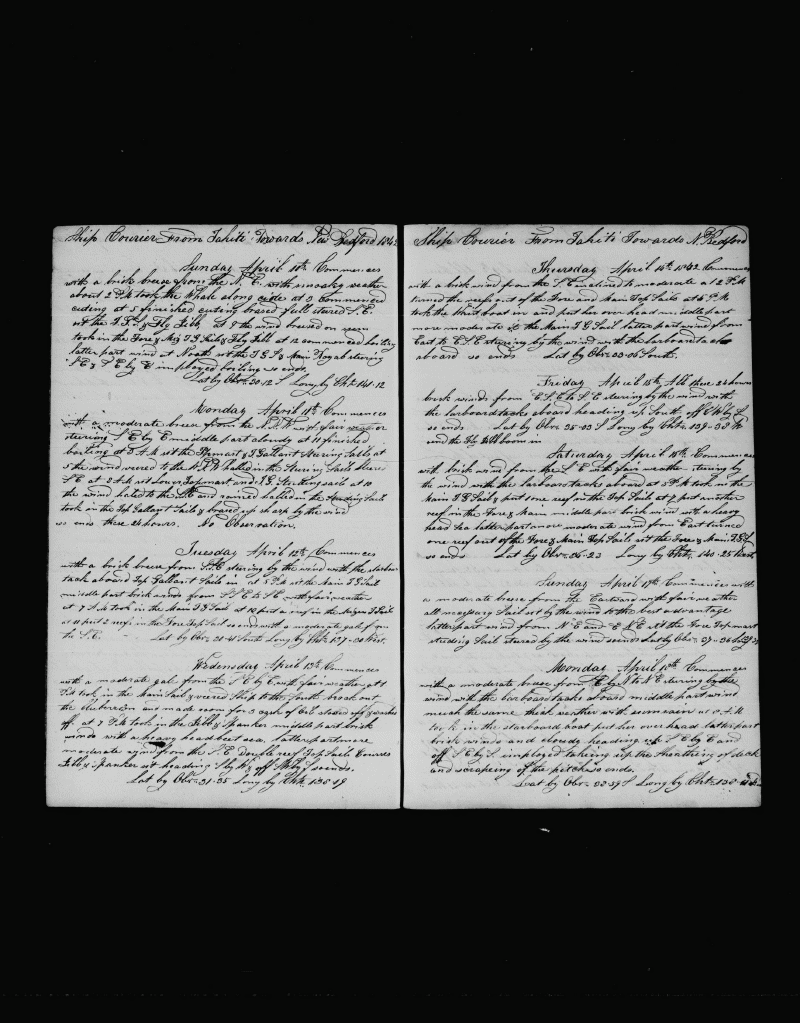 Ship Courier From Tahiti Towards New Bedford 1842
Sunday April 10th Commences
with a brisk breeze from the N. E. with smoaky weather
about 2 P.M took the Whale along side at 3 commenced
cuting at 5 finished cuting braced full steared S.E.
set the T.G.S & Fly Jibb, at 8 the wind breesed on
took in the Fore & Miz T G Sails & Fly Jib at 12 commenced boiling
latter part wind at North set the T G S & Main Royal stering
S E & S E by E imployed boiling so ends.
Lat by Obr 30-12 S Long by Chr 141-12
Monday April 11th Commences
with a moderate breese from the N.N.W with fair weather
steering S E by E middle part cloudy at 11 finished
boiling at 2 A.M set the Topmast & T Gallant Steering Sails at
5 the wind vered to the halled in the Steering Sails steared
S E at 8 A.M set Lower Topmast and T.G. Steering sails at 10
the wind haled to the and rained halled in the Steading Sails
took in the Top Gallant Sails & braced up sharp by the wind
so ends these 24 hours. No Observation.
Tuesday April 12th Commences
with a brisk breeze from S.E stering by the wind with the starboard
tack aboard Top Gallant Sails in at 5 P.M set the Main T G Sail
middle part brisk winds from S S E to S E with fair weather
at 7 A.M took in the Main T G Sail at 10 put a reef in the Mizen T Sail
at 11 put 2 reefs in the Fore Top Sail so ends with a moderate gale from
the S.E. Lat by Obr 30-41 South Long by Chr 137-30 West.
Wednesday April 13th Commences
with a moderate gale from the S E by E with fair weather at 1
P.M took in the Main Sail & veered Ship to the South broak out
the blubroom and made room for 3 casks of Oil stowed off & washed
off at 7 P.M took in the Jibb & Spanker middle part brisk
winds with a heavy head beet sea latter part more
moderate wind from the S.E. Double reef Top Sails Courses
Jibb & Spanker set heading S by W & off SW by S so ends.
Lat by Obr 31-35 Long by Chr 138-19
Ship Courier From Tahiti Towards N. Bedford
Thursday April 14th 1842 Commences
with a brisk wind from the S E inclined to moderate at 2 P.M
turned the reefs out of the Fore and Main Top Sails at 6 P.M
took the waist boat in and put her over head middle part
more moderate set the Main T G Sail latter part wind from
East to E.S.E stering by the wind with the larboard tack
aboard so ends Lat by Obr 33-06 South.
Friday April 15th All these 24 hours
brisk winds from E.S.E to S E stering by the wind with
the larboard tacks aboard heading up South off S W by S
so ends Lat by Obr 35-03 S Long by Chr 139-38 W
send the Fly Jibb boom in
Saturday April 16th Commences
with brisk wind from the S E with fair weather stering by
the wind with the larboard tacks aboard at 5 P.M took in the
Main T G Sail & put one reef in the Top Sails at 7 put another
reef in the Fore & Main middle part brisk wind with a heavy
head sea latter part more moderate wind from East turned
one reef out of the Fore & Main Top Sail set the Fore & Main T.G.S
so ends Lat by Obr 36-23 Long by Chr 140-25 West
Sunday April 17th Commences with
a moderate breese from the Eastward with fair weather
all necessary Sail set by the wind to the best advantage
latter part wind from N E and E N E set the Fore Topmast
studing Sail steared by the wind so ends Lat by Obr 37-36
Monday April 18th Commences
with a moderate breese from E by N to N E stering by the
wind with the larboard tacks aboard middle part wind
much the same thick weather with some rain at 5 A.M
took in the starboard boat put her over head latter part
brisk winds and cloudy heading up S E by E and
off S E by S imployed taking up the sheathing of deck
and scrapeing of the pitch so ends.
Lat by Obr 38-39 S Long by Chr 138